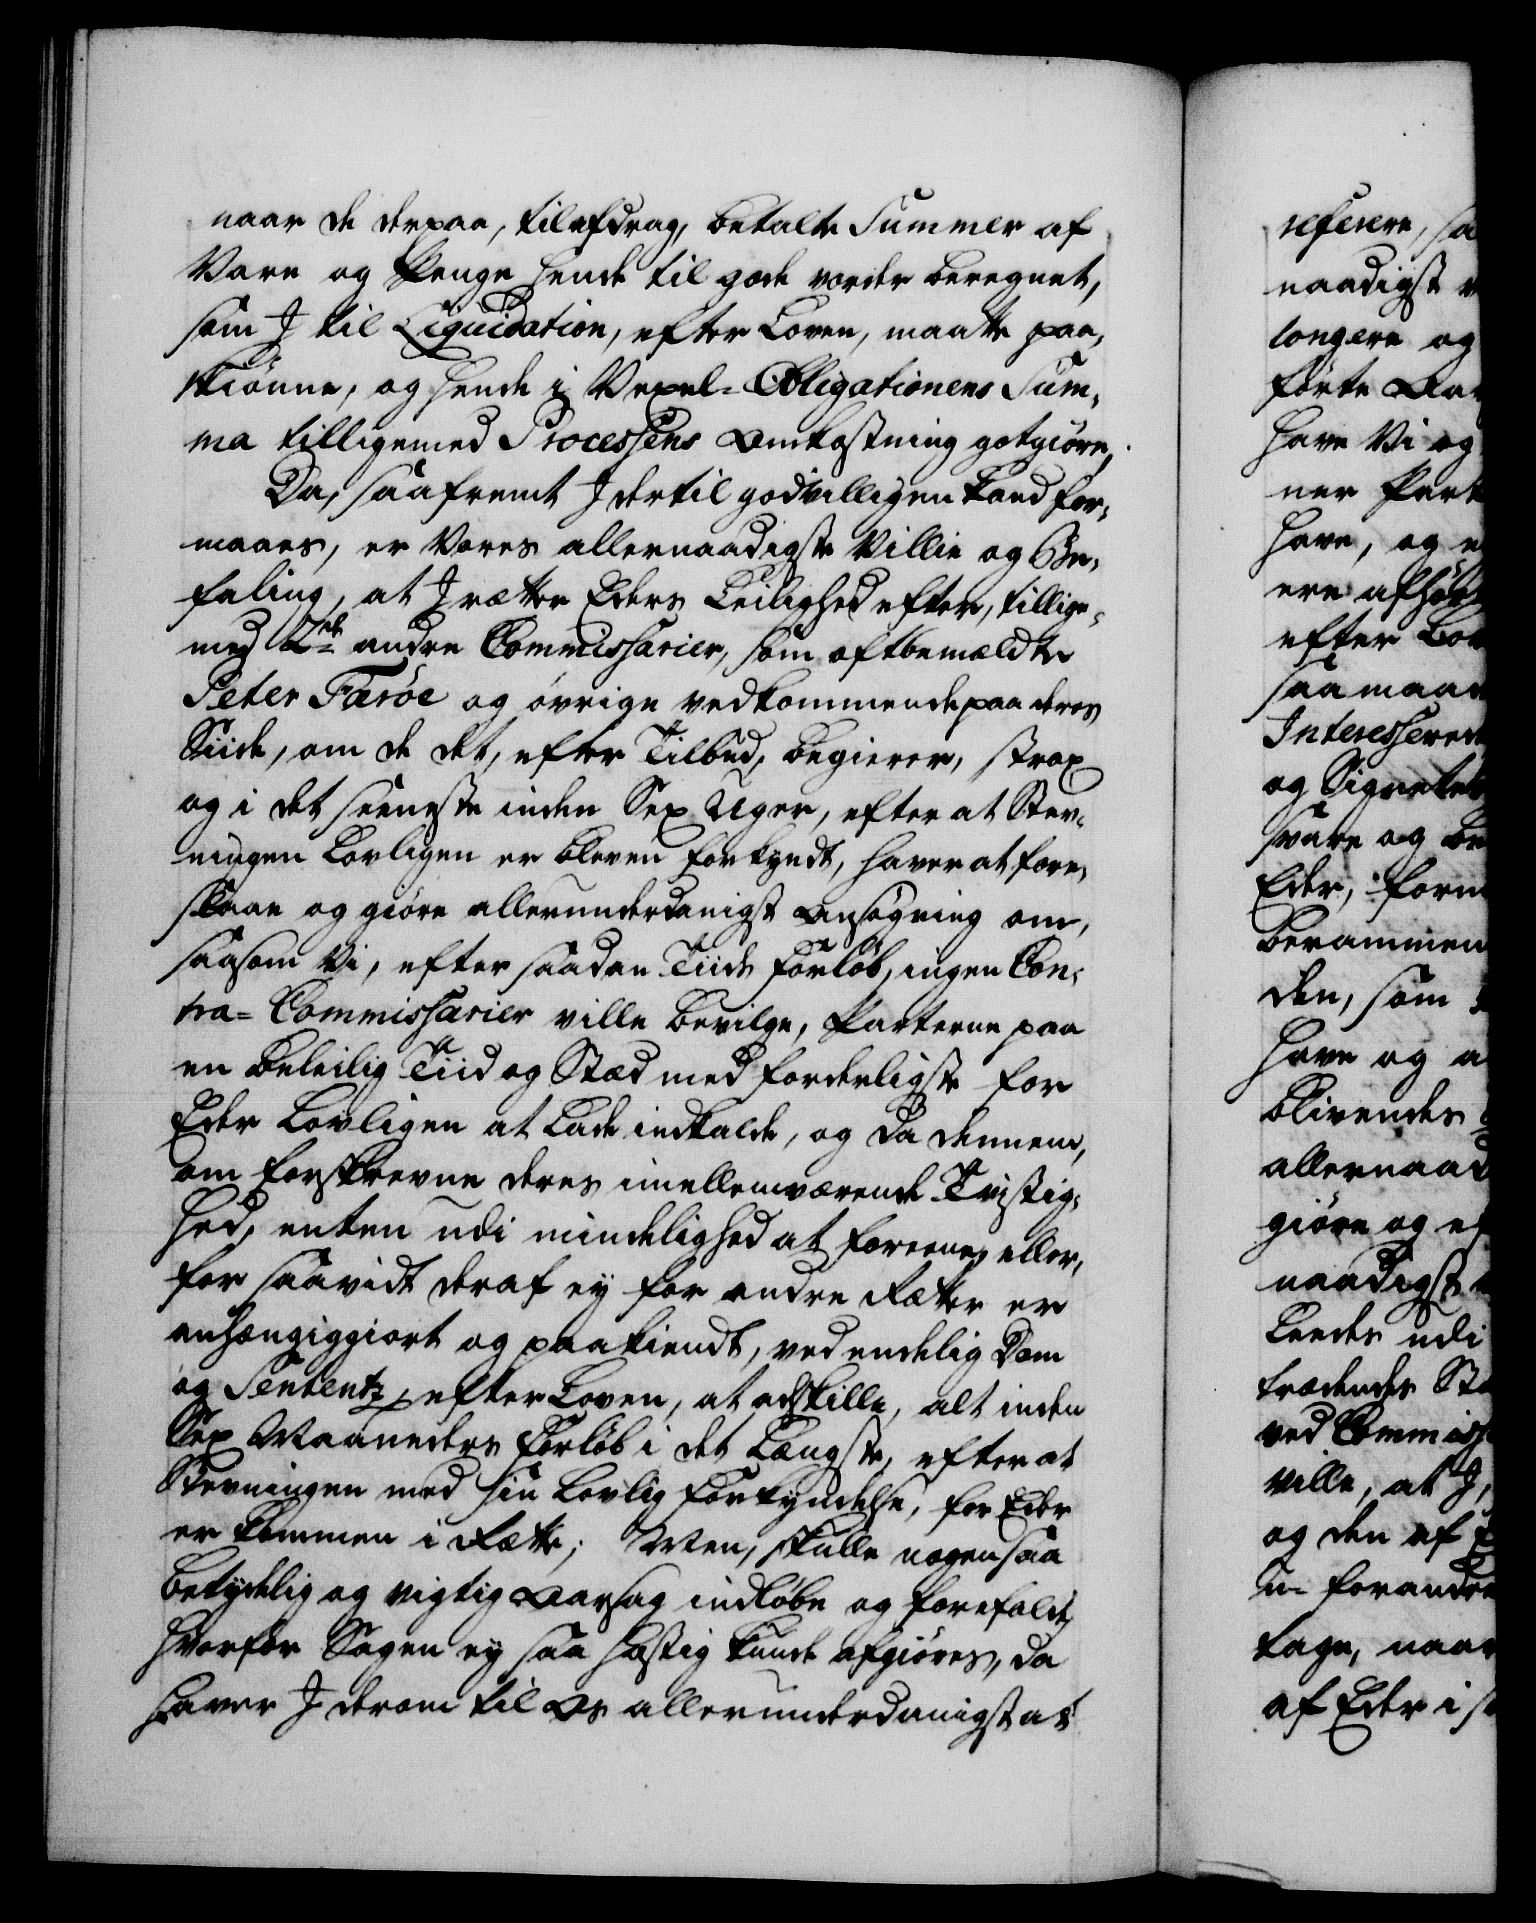 naar de derpaa, til afdrag, betalte Summer af
Vare og Penge hende til gode vorder beregnet,
som I til Liquidation, efter Loven, maatte paa,
skiønne, og hende i Vexel-Obligationens Sum,
ma tilligemed Processens Omkostning gotgiøre,
Da, saafremt I dertil godvilligen kand for,
maaes, er Vores allernaadigste Villie og Be,
faling, at I rætter Eders Leilighed efter, tillige,
med 2de andre Commissarier, som oftbemældte
Peter Færöe og øvrige vedkommende paa deres
Siide, om de det, efter Tilbud, begierer, strax
og i det seeneste inden Sex Uger, efter at Stev,
ningen Lovligen er bleven forkyndt, haver at fore,
slaae og giøre allerunderdanigst Ansøgning om,
saasom Vi, efter saadan Tiids Forløb, ingen Con,
tra-Commissarier ville bevilge, Parterne paa
en beleilig Tiid og Stæd med forderligste for
Eder Lovligen at Lade indkalde, og da dennem,
om forskrevne deres imellemværende Tvistig,
hed, enten udi mindelighed at foreene, eller,
for saavidt deraf ey for andre Rætter er
anhængiggiort og paakiendt, ved endelig Dom
og Sententz, efter Loven, at adskille, alt inden
Sex Maaneders Forløb i det Længste, efter at
Stevningen med sin Lovlig Forkyndelse, for Eder
er kommen i Rætte; Men, skulle nogen saa
betydelig og vigtig Aarsag indløbe og forefalde,
hvorfor Sagen ey saa hastig kunde afgiøres, da
haver I derom til Os allerunderdanigst at
referere, sa
naadigst
longere og
førte Aar
have Vi og
ner Part
have, og
ere afhør
efter Lov
saa maad
Interessered
og Signetet
svare og be
Eder, form
berammen
den, som
have og a
blivendes
allernaad
giøre og ef
naadigst
Leedes udi
trædendes Sta
ved Commiss
ville, at I,
og den af
u- forandre
tage, naar
af Eder i s